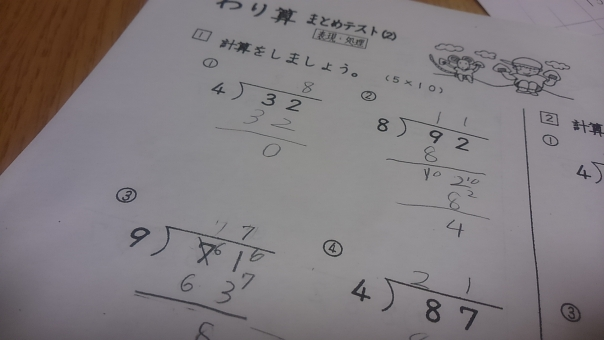 わり算 まとめテスト(2)
表現・処理
1 計算をしましょう。 (5×10)
① 8
4)32
32
0
② 11
8)92
8
2
8
4
③ 7
9)71
63
8
④ 21
4)87
2 計算
①
4)
③